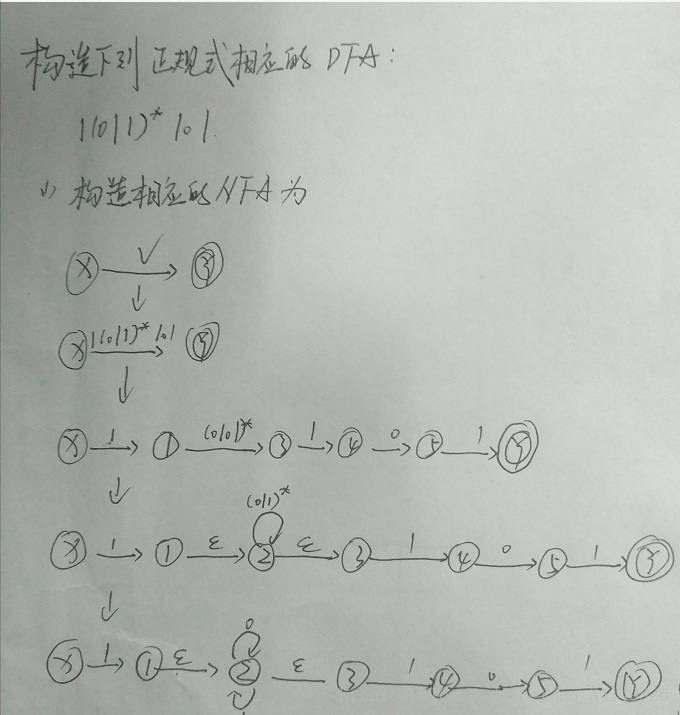 构造下列正规式相应的DFA:
1(0|1)*101
1) 构造相应的NFA为
X Y
X 1(0|1)*101 Y
X 1 1 (0|0)* 3 1 4 0 5 1 Y
(0|1)*
X 1 1 ε 2 ε 3 1 4 0 5 1 Y
0
X 1 1 ε 2 ε 3 1 4 0 5 1 Y